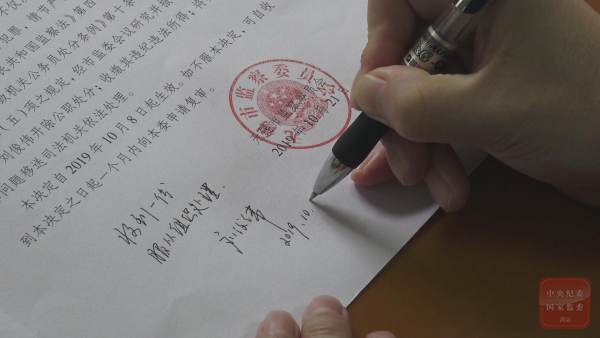 民共和国监察法》第四
政机关公务员处分条例》第十条
（五）项之规定，经市监委会议研究并报
刘俊伟开除公职处分；收缴其违纪违法所得；将
问题移送司法机关依法处理。
本决定自2019年10月8日起生效。如不服本决定，可自收
到本决定之日起一个月内向本委申请复审。
市监察委员会
2019年10月21
收到一份
服从组织处理.
刘俊伟
2019.10.
中央纪委
国家监委
网站